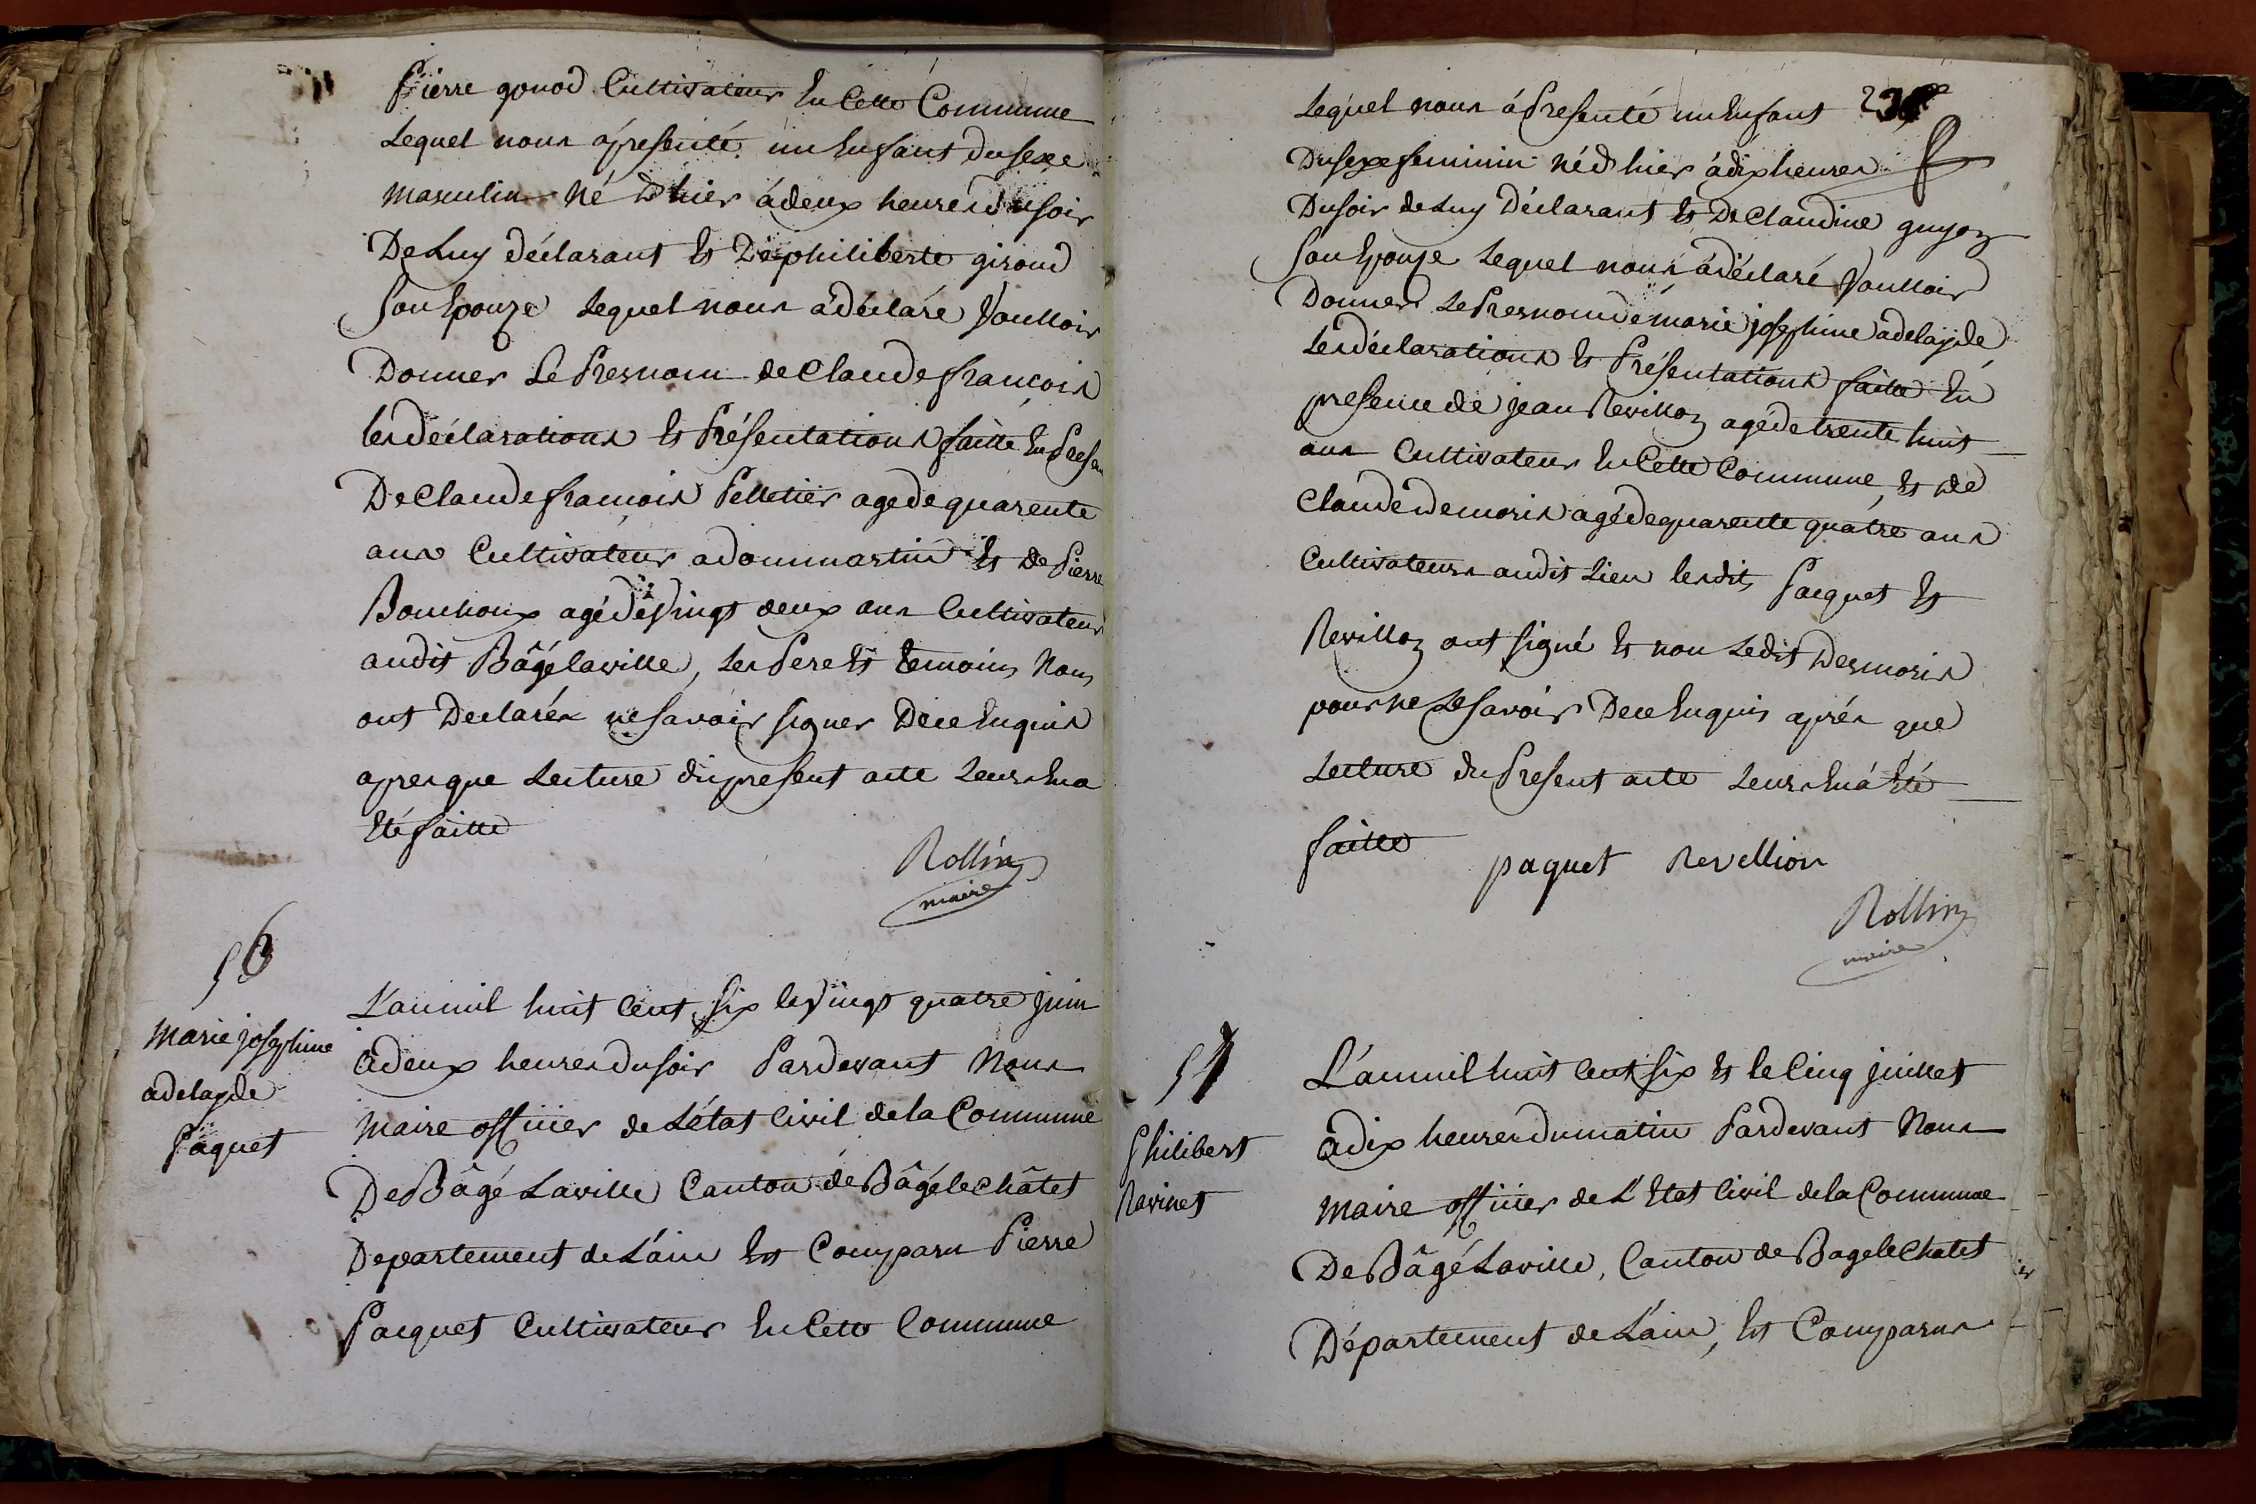 Pierre gonod Cultivateur En Cette Commune
Lequel nous apresenté un Enfant du sexe
masculin Né d'hier à deux heures du soir
De Luy déclarant Et De philiberte giroud
Son Epouze Lequel nous à déclaré Vouloir
Donner Le Presnom de Claude françois
les déclarations Et Présentations faitte En Presen
De Claude françois Pelletier age de quarente
ans Cultivateur a dommartin Et de Pierre
Bouchoux agé de Vingt deux ans Cultivateur
audit Bâgé laville, Les Pere Et temoins Nous
ont Declarés ne savoir signer De ce Enquis
apres que Lecture du present acte Leurs En a
Eté faitte
Rollin
maire
56
Marie josephine
adelayde
Paquet
L'an mil huit Cent six le Vingt quatre juin
à deux heures du soir Pardevant Nous
Maire officier de L'état Civil de la Commune
De Bâgé Laville Canton de Bâgé le Châtel
Departement de L'ain Est Comparu Pierre
Pacquet Cultivateur En Cette Commune
Lequel nous à Presenté un Enfant
Du sexe feminin né d'hier à dix heures
Du soir de Luy Déclarant Et De Claudine guyon
Son Epouse Lequel nous à déclaré Voulloir
Donner Le Presnom de marie josephine adelayde
Les déclarations Et Présentations faitte En
presence de jean Revillon agé de trente huit
ans Cultivateur En Cette Commune, Et de
Claude demoris agé de quarente quatre ans
Cultivateurs audit Lieu lesdits Pacquet Et
Revillon ont signé Et non Ledit Desmoris
pour ne Le savoir De ce Enquis aprés que
Lecture du Present acte Leurs En à Eté
faitte
paquet Revellion
Rollin
maire
57
Philibert
Ravinet
L'an mil huit Cent six Et le Cinq juillet
à dix heures du matin Pardevant Nous
Maire officier de L'Etat Civil de la Commune
De Bâgé Laville, Canton de Bage le Chatel
Département de L'ain, Est Comparus